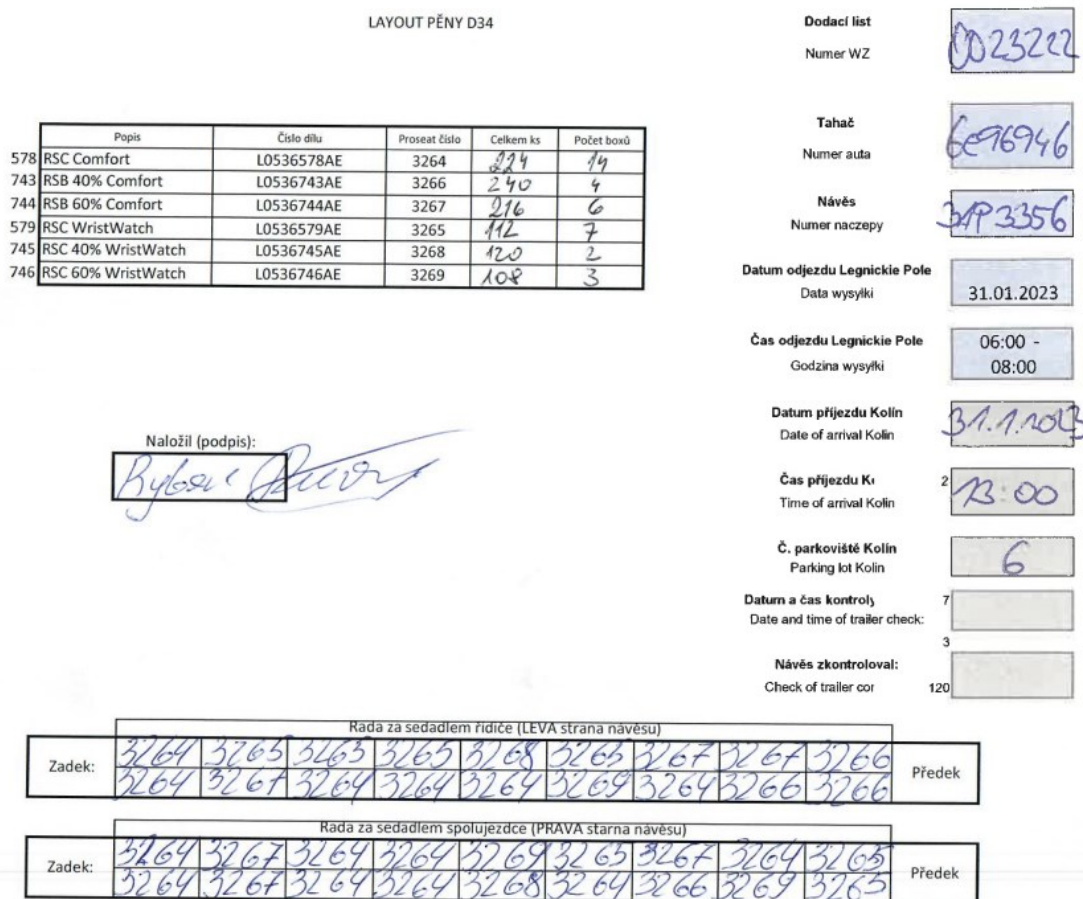 LAYOUT PĚNY D34
Dodací list
Numer WZ
0023222
Tahač
Numer auta
6e96946
Návěs
Numer naczepy
3AP3356
Datum odjezdu Legnickie Pole
Data wysyłki
31.01.2023
Čas odjezdu Legnickie Pole
Godzina wysyłki
06:00 -
08:00
Datum příjezdu Kolín
Date of arrival Kolin
31.1.2023
Čas příjezdu Ko
Time of arrival Kolin
2
13:00
Č. parkoviště Kolín
Parking lot Kolin
6
Datum a čas kontroly
7
Date and time of trailer check:
3
Návěs zkontroloval:
Check of trailer cor
120
Popis Číslo dílu Proseat číslo Celkem ks Počet boxů
578 RSC Comfort L0536578AE 3264 224 14
743 RSB 40% Comfort L0536743AE 3266 240 4
744 RSB 60% Comfort L0536744AE 3267 216 6
579 RSC WristWatch L0536579AE 3265 112 7
745 RSC 40% WristWatch L0536745AE 3268 120 2
746 RSC 60% WristWatch L0536746AE 3269 108 3
Naložil (podpis):
Rada za sedadlem řidiče (LEVA strana návěsu)
Zadek:
3264 3265 3265 3265 3268 3265 3267 3267 3266
3264 3267 3264 3264 3264 3269 3264 3266 3266
Předek
Rada za sedadlem spolujezdce (PRAVA starna návěsu)
Zadek:
3264 3267 3264 3264 3269 3265 3267 3264 3265
3264 3267 3264 3264 3268 3264 3266 3269 3265
Předek